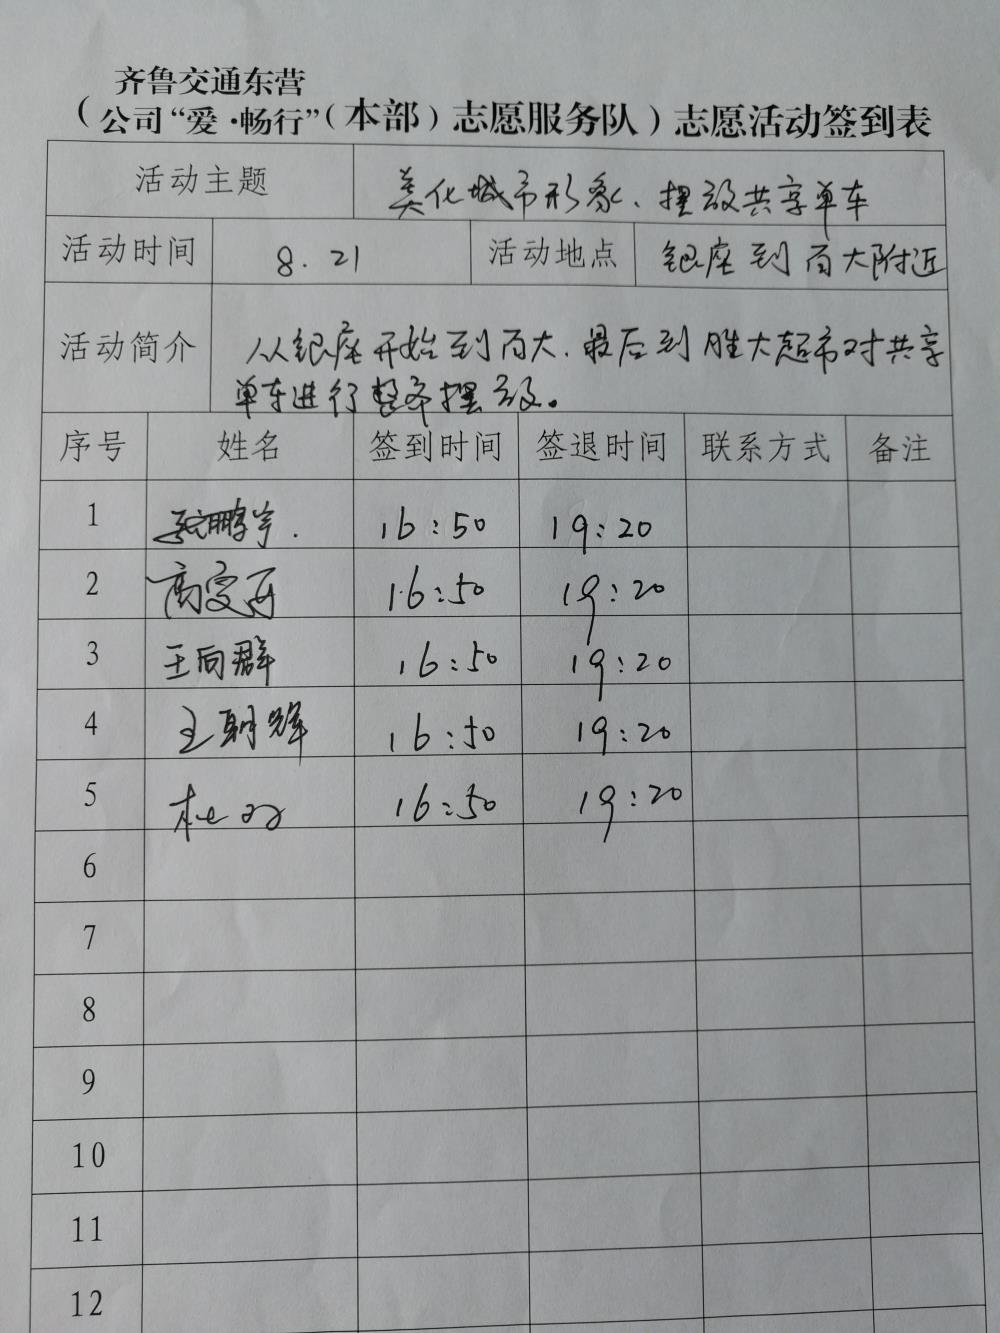 齐鲁交通东营
（公司“爱·畅行”（本部）志愿服务队）志愿活动签到表
活动主题 美化城市形象、摆放共享单车
活动时间 8.21 活动地点 银座到百大附近
活动简介 从银座开始到百大、最后到胜大超市对共享
单车进行整齐摆放。
序号 姓名 签到时间 签退时间 联系方式 备注
1 16:50 19:20
2 16:50 19:20
3 王向群 16:50 19:20
4 王朝辉 16:50 19:20
5 杜双 16:50 19:20
6
7
8
9
10
11
12